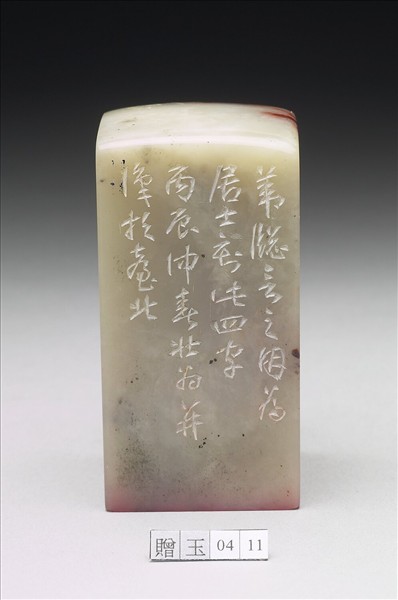 葦牕言之因為
居士刻此四字
丙辰仲春壯為并
於臺北
贈玉 04 11